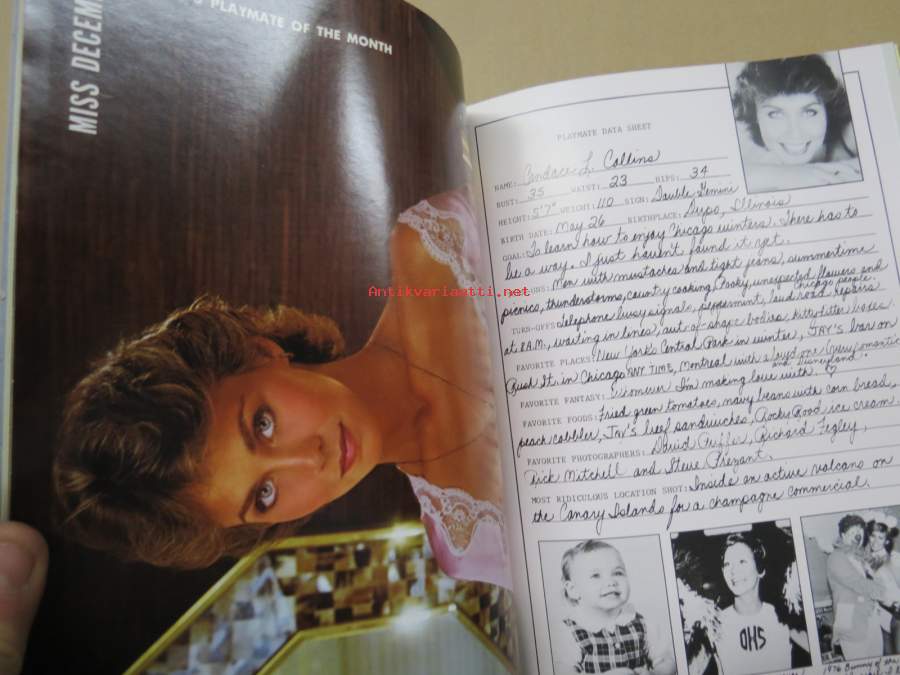 PLAYMATE OF THE MONTH
MISS DECEM
Antikvariaatti.net
PLAYMATE DATA SHEET
NAME: Candace L. Collins
BUST: 35 WAIST: 23 HIPS: 34
HEIGHT: 5'7" WEIGHT: 110 SIGN: Double Gemini
BIRTH DATE: May 26 BIRTHPLACE: Dupo, Illinois
GOAL: To learn how to enjoy Chicago winters. There has to
be a way. I just haven't found it yet.
ONS: Men with mustaches and tight jeans, summertime
picnics, thunderstorms, country cooking, Rocky, unexpected flowers and
Chicago people.
TURN-OFFS: telephone busy signals, peppermint, loud road repairs
at 8 A.M., waiting in lines, out-of-shape bodies, kitty litter boxes
FAVORITE PLACES: New York's Central Park in winter, JAY'S bar on
Rush St. in Chicago ANY TIME, Montreal with a loved one (very romantic
and Disneyland.
FAVORITE FANTASY: Whomever I'm making love with. ♡
FAVORITE FOODS: Fried green tomatoes, navy beans with corn bread,
peach cobbler, Jay's beef sandwiches, Rocky Road ice cream
FAVORITE PHOTOGRAPHERS: David Richard Fegley,
Dick Mitchell and Steve
MOST RIDICULOUS LOCATION SHOT: Inside an active volcano on
the Canary Islands for a champagne commercial.
OHS
1976 Bunny of the